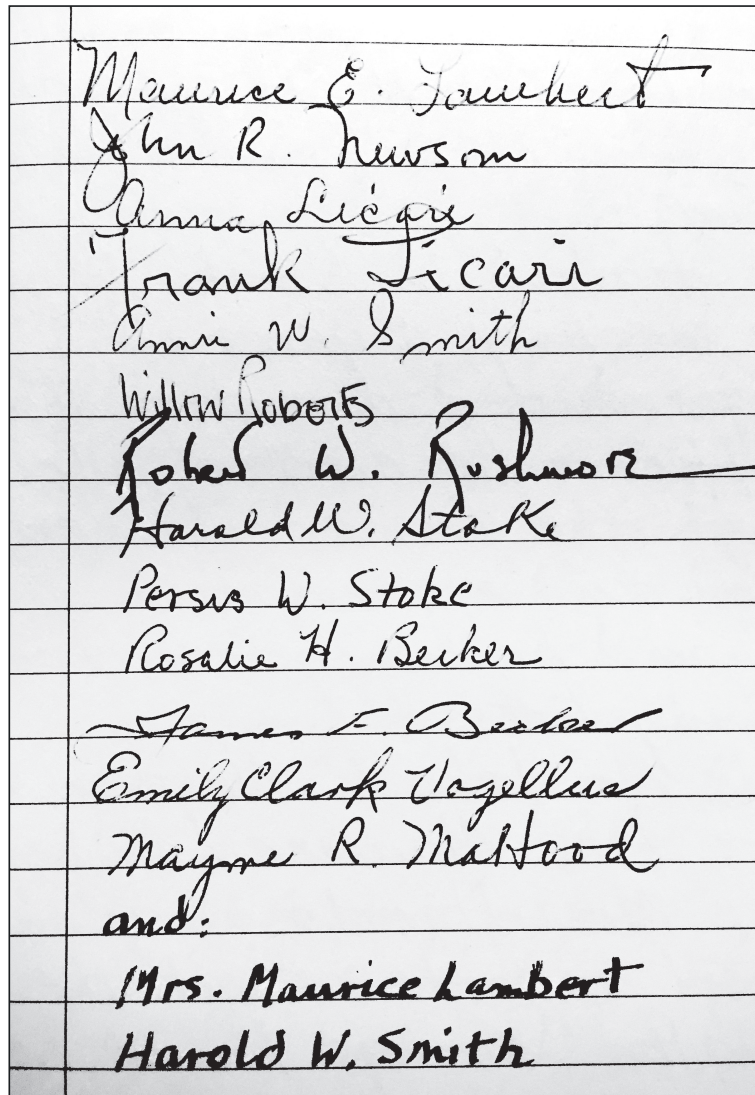 Maurice E. Lambert
John R. Newsom
Anna Licari
Frank Licari
Annie W. Smith
Willow Roberts
Robert W. Rushmore
Harold W. Stoke
Persis W. Stoke
Rosalie H. Becker
James F. Becker
Emily Clark Vogellus
Mayme R. MaHood
and:
Mrs. Maurice Lambert
Harold W. Smith